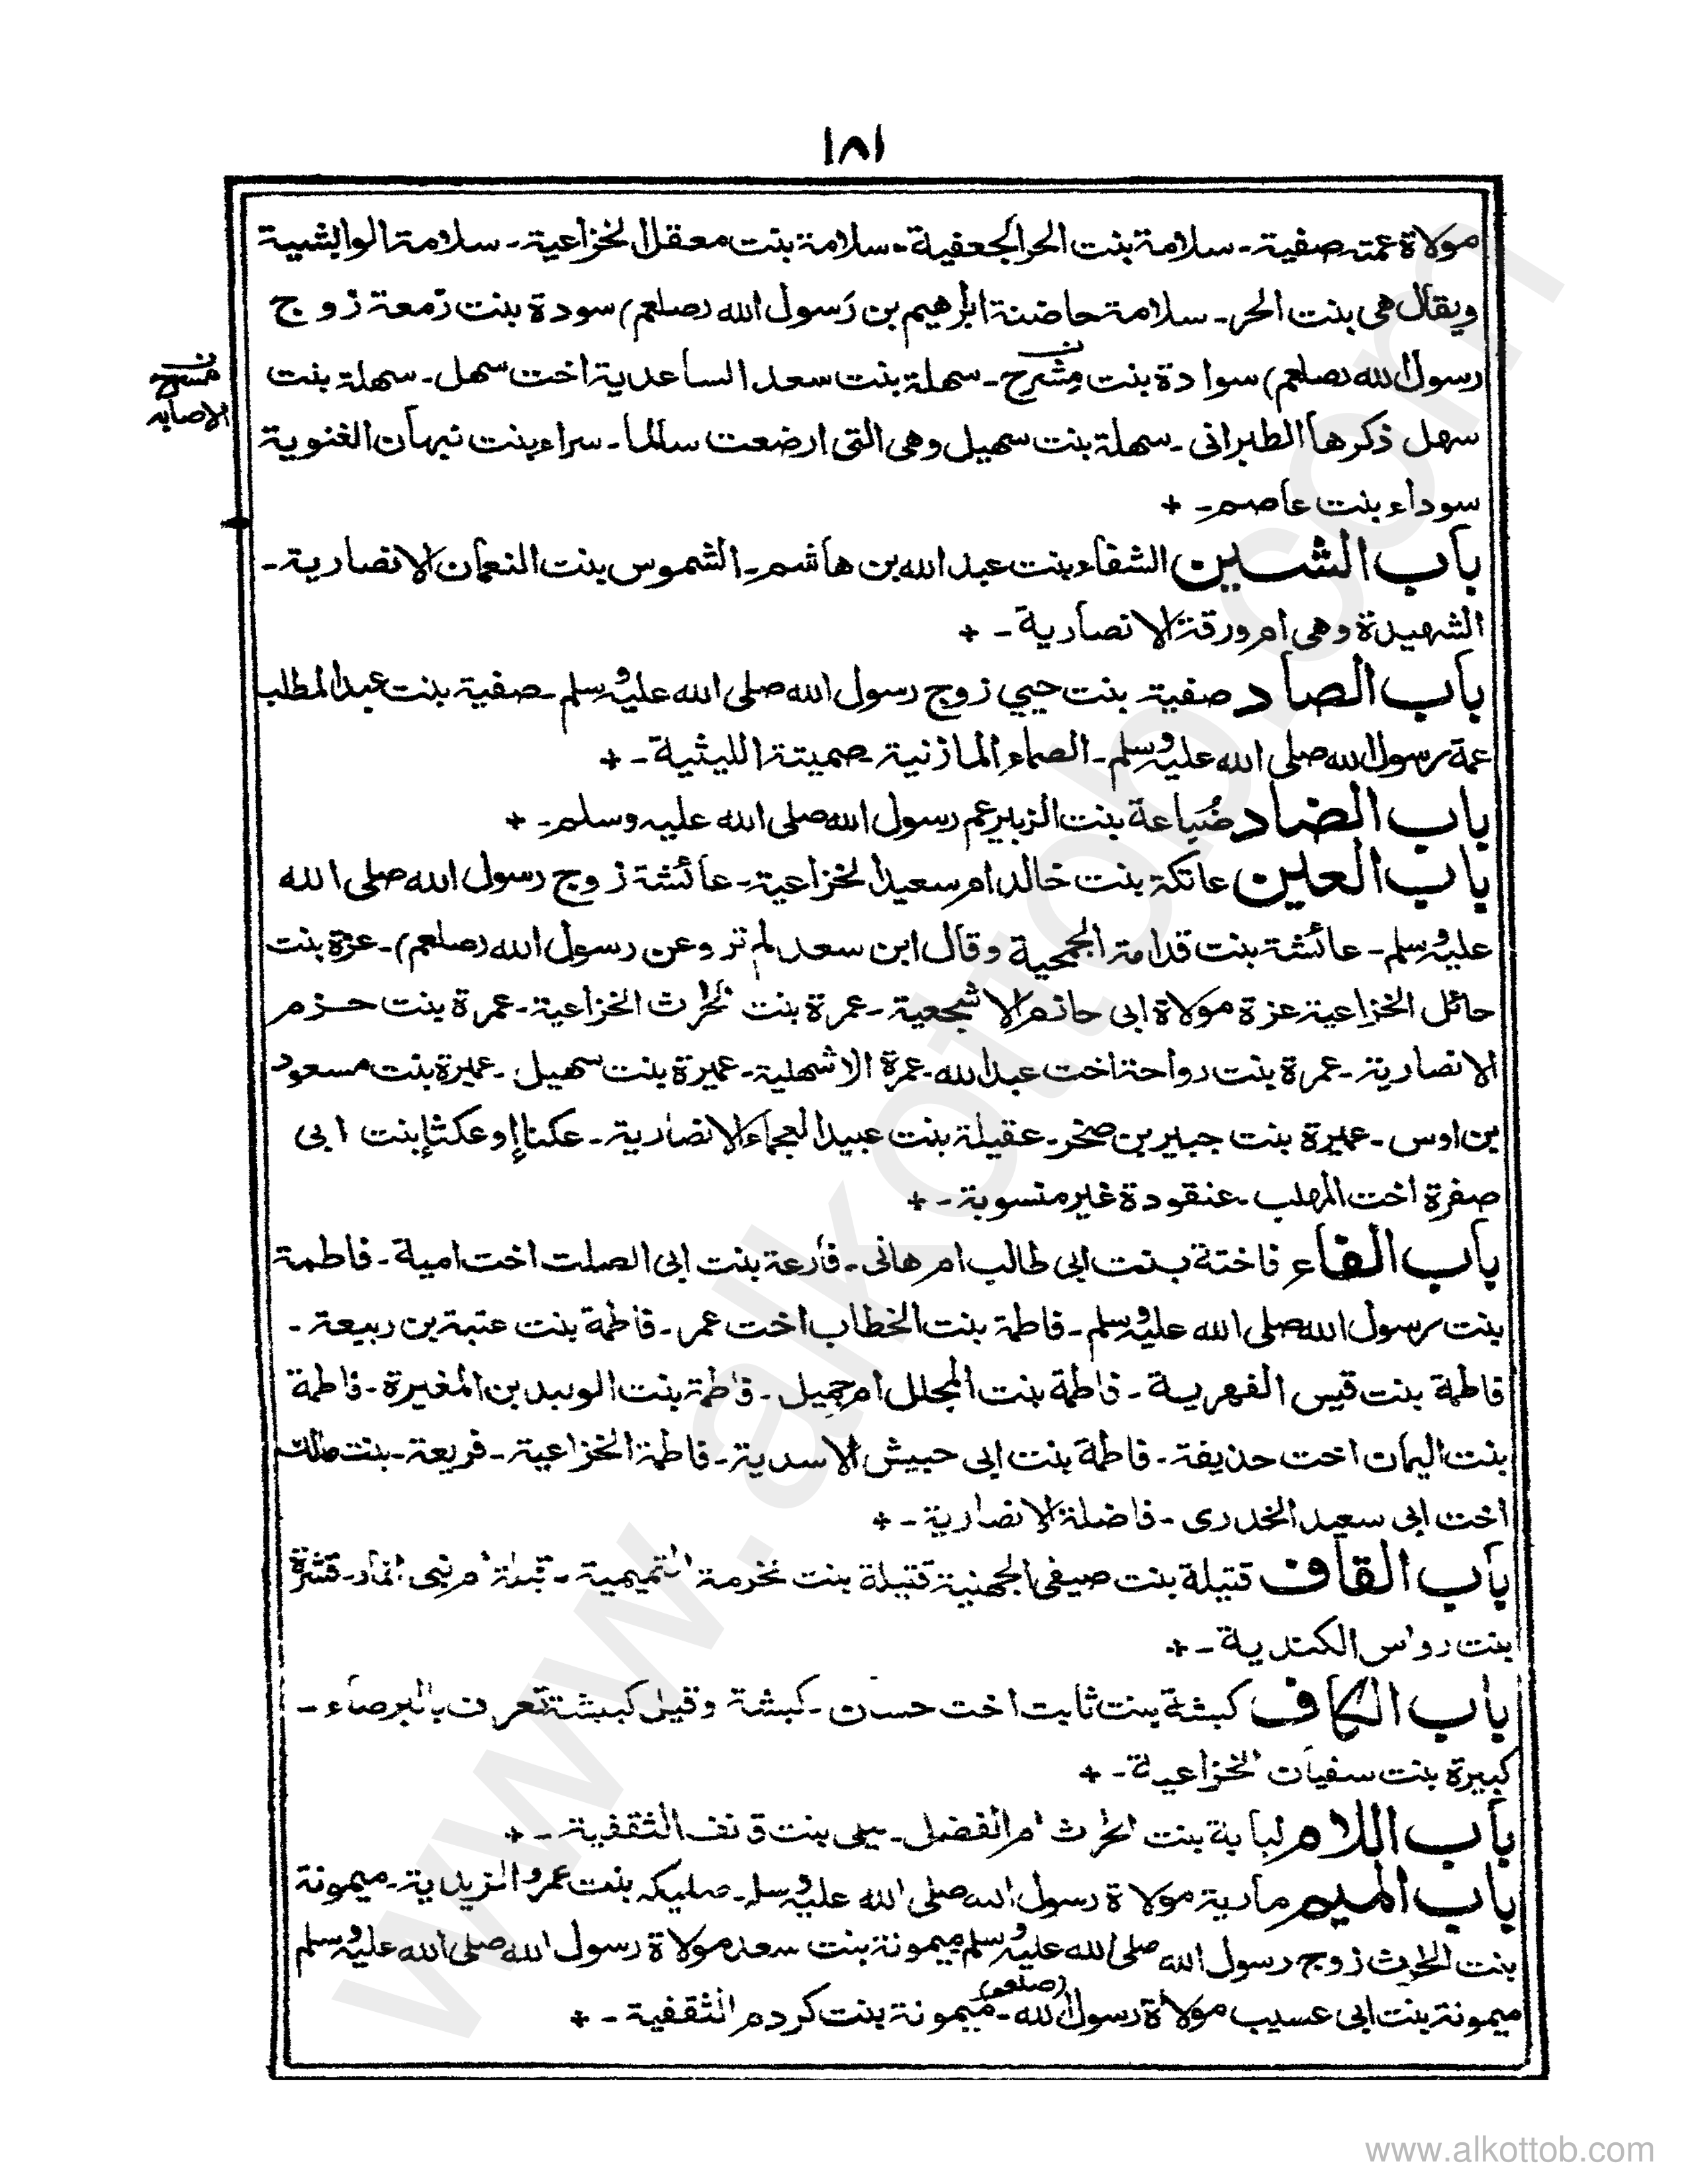 ١٨١
مولاة عمته صفية ـ سلامة بنت الحر الجعفية ـ سلامة بنت معقل الخزاعية ـ سلامة الوابشية
ويقال هى بنت الحر ـ سلامة حاضنة ابرهيم بن رسول الله (صلعم) سودة بنت زمعة زوج
رسول الله (صلعم) سوادة بنت مِشرح ـ سهلة بنت سعد الساعدية اخت سهل ـ سهلة بنت
ن مسرح الاصابه
سهل ذكرها الطبرانى ـ سهلة بنت سهيل وهى التى ارضعت سالما ـ سراء بنت نبهان الغنوية
سوداء بنت عاصم ـ +
باب الشين الشفاء بنت عبد الله بن هاشم ـ الشموس بنت النعمان الانصارية ـ
الشهيدة وهى ام ورقة الانصارية ـ +
باب الصاد صفية بنت حيي زوج رسول الله صلى الله عليه وسلم ـ صفية بنت عبد المطلب
عمة رسول الله صلى الله عليه وسلم ـ الصماء المازنية ـ صميتة الليثية ـ +
باب الضاد ضُباعة بنت الزبير عم رسول الله صلى الله عليه وسلم ـ +
باب العين عاتكة بنت خالد ام سعيد الخزاعية ـ عائشة زوج رسول الله صلى الله
عليه وسلم ـ عائشة بنت قدامة الجمحية وقال ابن سعد لم تر وعن رسول الله (صلعم) ـ عزة بنت
حائل الخزاعية عزة مولاة ابى حازم الاشجعية ـ عمرة بنت الحرث الخزاعية ـ عمرة بنت حزم
الانصارية ـ عمرة بنت رواحة اخت عبد الله ـ عمرة الاشهلية ـ عميرة بنت سهيل ـ عميرة بنت مسعود
بن اوس ـ عميرة بنت جبير بن صخر ـ عقيلة بنت عبيد العجماء الانصارية ـ او بنت ابى
صفرة اخت المهلب ـ عنقودة غير منسوبة ـ +
باب الفاء فاختة بنت ابى طالب ام هانى ـ فارعة بنت ابى الصلت اخت امية ـ فاطمة
بنت رسول الله صلى الله عليه وسلم ـ فاطمة بنت الخطاب اخت عمر ـ فاطمة بنت عتبة بن ربيعة ـ
فاطمة بنت قيس الفهرية ـ فاطمة بنت المجلل ام جميل ـ فاطمة بنت الوليد بن المغيرة ـ فاطمة
بنت اليمان اخت حذيفة ـ فاطمة بنت ابى حبيش الاسدية ـ فاطمة الخزاعية ـ فريعة ـ بنت مالك
اخت ابى سعيد الخدرى ـ فاضلة الانصارية ـ +
باب القاف قتيلة بنت صيفى الجهنية قتيلة بنت مخرمة التميمية ـ قيلة ام بنى انمار ـ
بنت رواس الكندية ـ +
باب الكاف كبشة بنت ثابت اخت حسان ـ كبشة وقيل كبيشة تعرف بالبرصاء ـ
كبيرة بنت سفيان الخزاعية ـ +
باب اللام لبابة بنت الحرث ام الفضل ـ ليلى بنت قانف الثقفية ـ +
باب الميم مارية مولاة رسول الله صلى الله عليه وسلم ـ مليكة بنت عمرو الزيدية ـ ميمونة
بنت الحرث زوج رسول الله صلى الله عليه وسلم ميمونة بنت سعد مولاة رسول الله صلى الله عليه وسلم
ميمونة بنت ابى عسيب مولاة رسول الله (صلعم) ـ ميمونة بنت كردم الثقفية ـ +
www.alkottob.com
www.alkottob.com